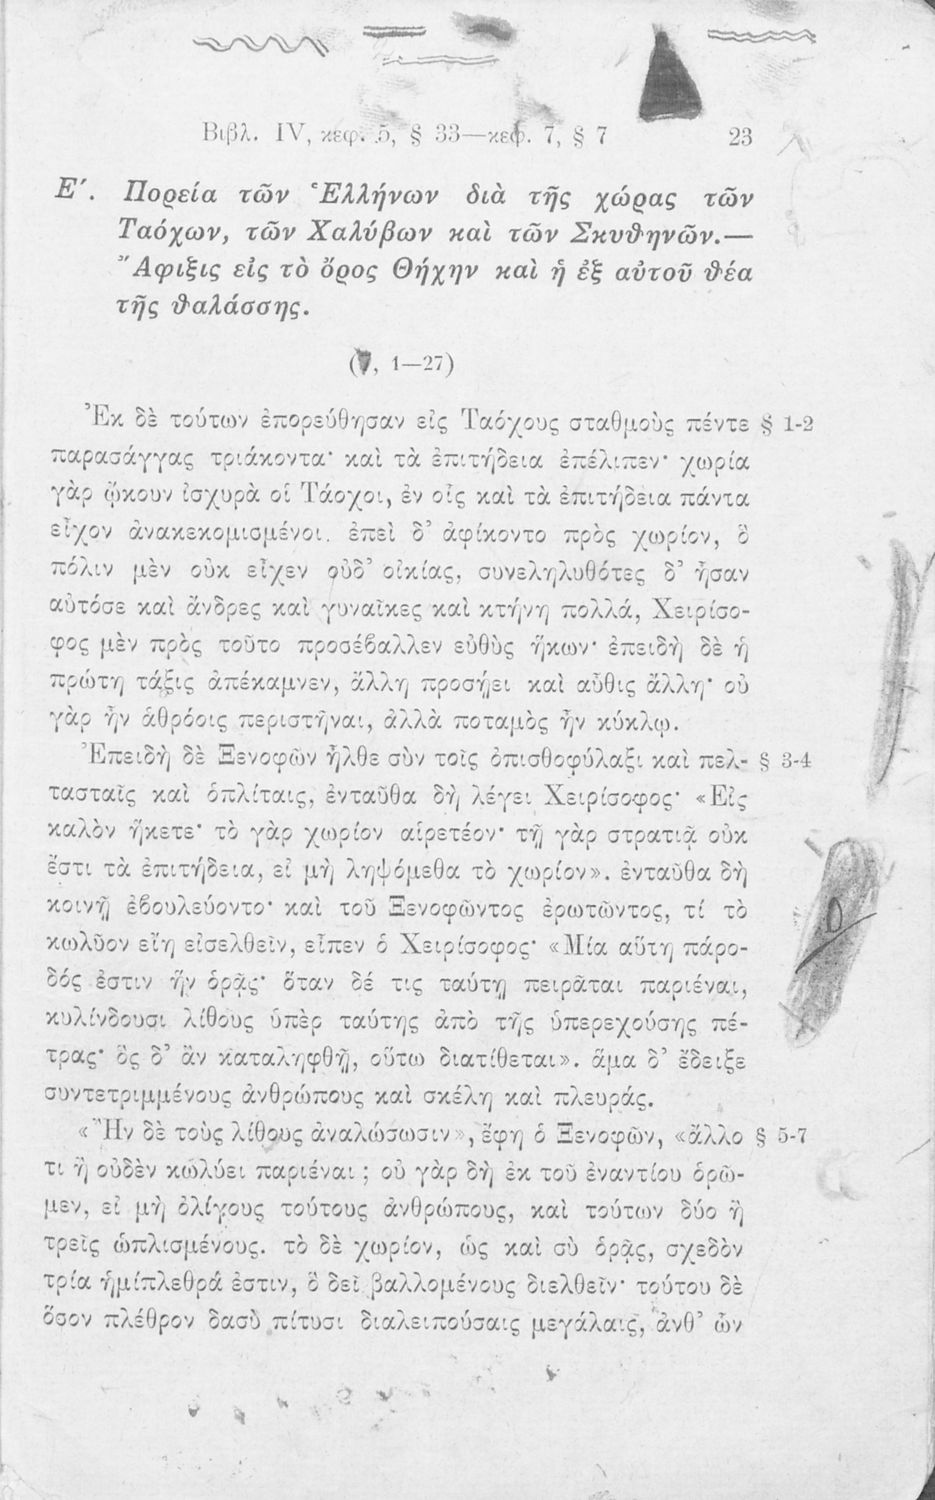 Βιβλ. IV, κεφ. 5, § 33—κεφ. 7, § 7 23
Ε΄. Πορεία τῶν Ἑλλήνων διὰ τῆς χώρας τῶν
Ταόχων, τῶν Χαλύβων καὶ τῶν Σκυθηνῶν.—
Ἄφιξις εἰς τὸ ὄρος Θήχην καὶ ἡ ἐξ αὐτοῦ θέα
τῆς θαλάσσης.
(7, 1—27)
Ἐκ δὲ τούτων ἐπορεύθησαν εἰς Ταόχους σταθμοὺς πέντε § 1-2
παρασάγγας τριάκοντα· καὶ τὰ ἐπιτήδεια ἐπέλιπεν· χωρία
γὰρ ᾤκουν ἰσχυρὰ οἱ Τάοχοι, ἐν οἷς καὶ τὰ ἐπιτήδεια πάντα
εἶχον ἀνακεκομισμένοι. ἐπεὶ δ’ ἀφίκοντο πρὸς χωρίον, ὃ
πόλιν μὲν οὐκ εἶχεν οὐδ’ οἰκίας, συνεληλυθότες δ’ ἦσαν
αὐτόσε καὶ ἄνδρες καὶ γυναῖκες καὶ κτήνη πολλά, Χειρίσο-
φος μὲν πρὸς τοῦτο προσέβαλλεν εὐθὺς ἥκων· ἐπειδὴ δὲ ἡ
πρώτη τάξις ἀπέκαμνεν, ἄλλη προσῄει καὶ αὖθις ἄλλη· οὐ
γὰρ ἦν ἁθρόοις περιστῆναι, ἀλλὰ ποταμὸς ἦν κύκλῳ.
Ἐπειδὴ δὲ Ξενοφῶν ἦλθε σὺν τοῖς ὀπισθοφύλαξι καὶ πελ- § 3-4
τασταῖς καὶ ὁπλίταις, ἐνταῦθα δὴ λέγει Χειρίσοφος· «Εἰς
καλὸν ἥκετε· τὸ γὰρ χωρίον αἱρετέον· τῇ γὰρ στρατιᾷ οὐκ
ἔστι τὰ ἐπιτήδεια, εἰ μὴ ληψόμεθα τὸ χωρίον». ἐνταῦθα δὴ
κοινῇ ἐβουλεύοντο· καὶ τοῦ Ξενοφῶντος ἐρωτῶντος, τί τὸ
κωλῦον εἴη εἰσελθεῖν, εἶπεν ὁ Χειρίσοφος· «Μία αὕτη πάρο-
δός ἐστιν ἣν ὁρᾷς· ὅταν δέ τις ταύτῃ πειρᾶται παριέναι,
κυλίνδουσι λίθους ὑπὲρ ταύτης ἀπὸ τῆς ὑπερεχούσης πέ-
τρας· ὃς δ’ ἂν καταληφθῇ, οὕτω διατίθεται». ἅμα δ’ ἔδειξε
συντετριμμένους ἀνθρώπους καὶ σκέλη καὶ πλευράς.
«Ἢν δὲ τοὺς λίθους ἀναλώσωσιν», ἔφη ὁ Ξενοφῶν, «ἄλλο § 5-7
τι ἢ οὐδὲν κωλύει παριέναι ; οὐ γὰρ δὴ ἐκ τοῦ ἐναντίου ὁρῶ-
μεν, εἰ μὴ ὀλίγους τούτους ἀνθρώπους, καὶ τούτων δύο ἢ
τρεῖς ὡπλισμένους. τὸ δὲ χωρίον, ὡς καὶ σὺ ὁρᾷς, σχεδὸν
τρία ἡμίπλεθρά ἐστιν, ὃ δεῖ βαλλομένους διελθεῖν· τούτου δὲ
ὅσον πλέθρον δασὺ πίτυσι διαλειπούσαις μεγάλαις, ἀνθ’ ὧν